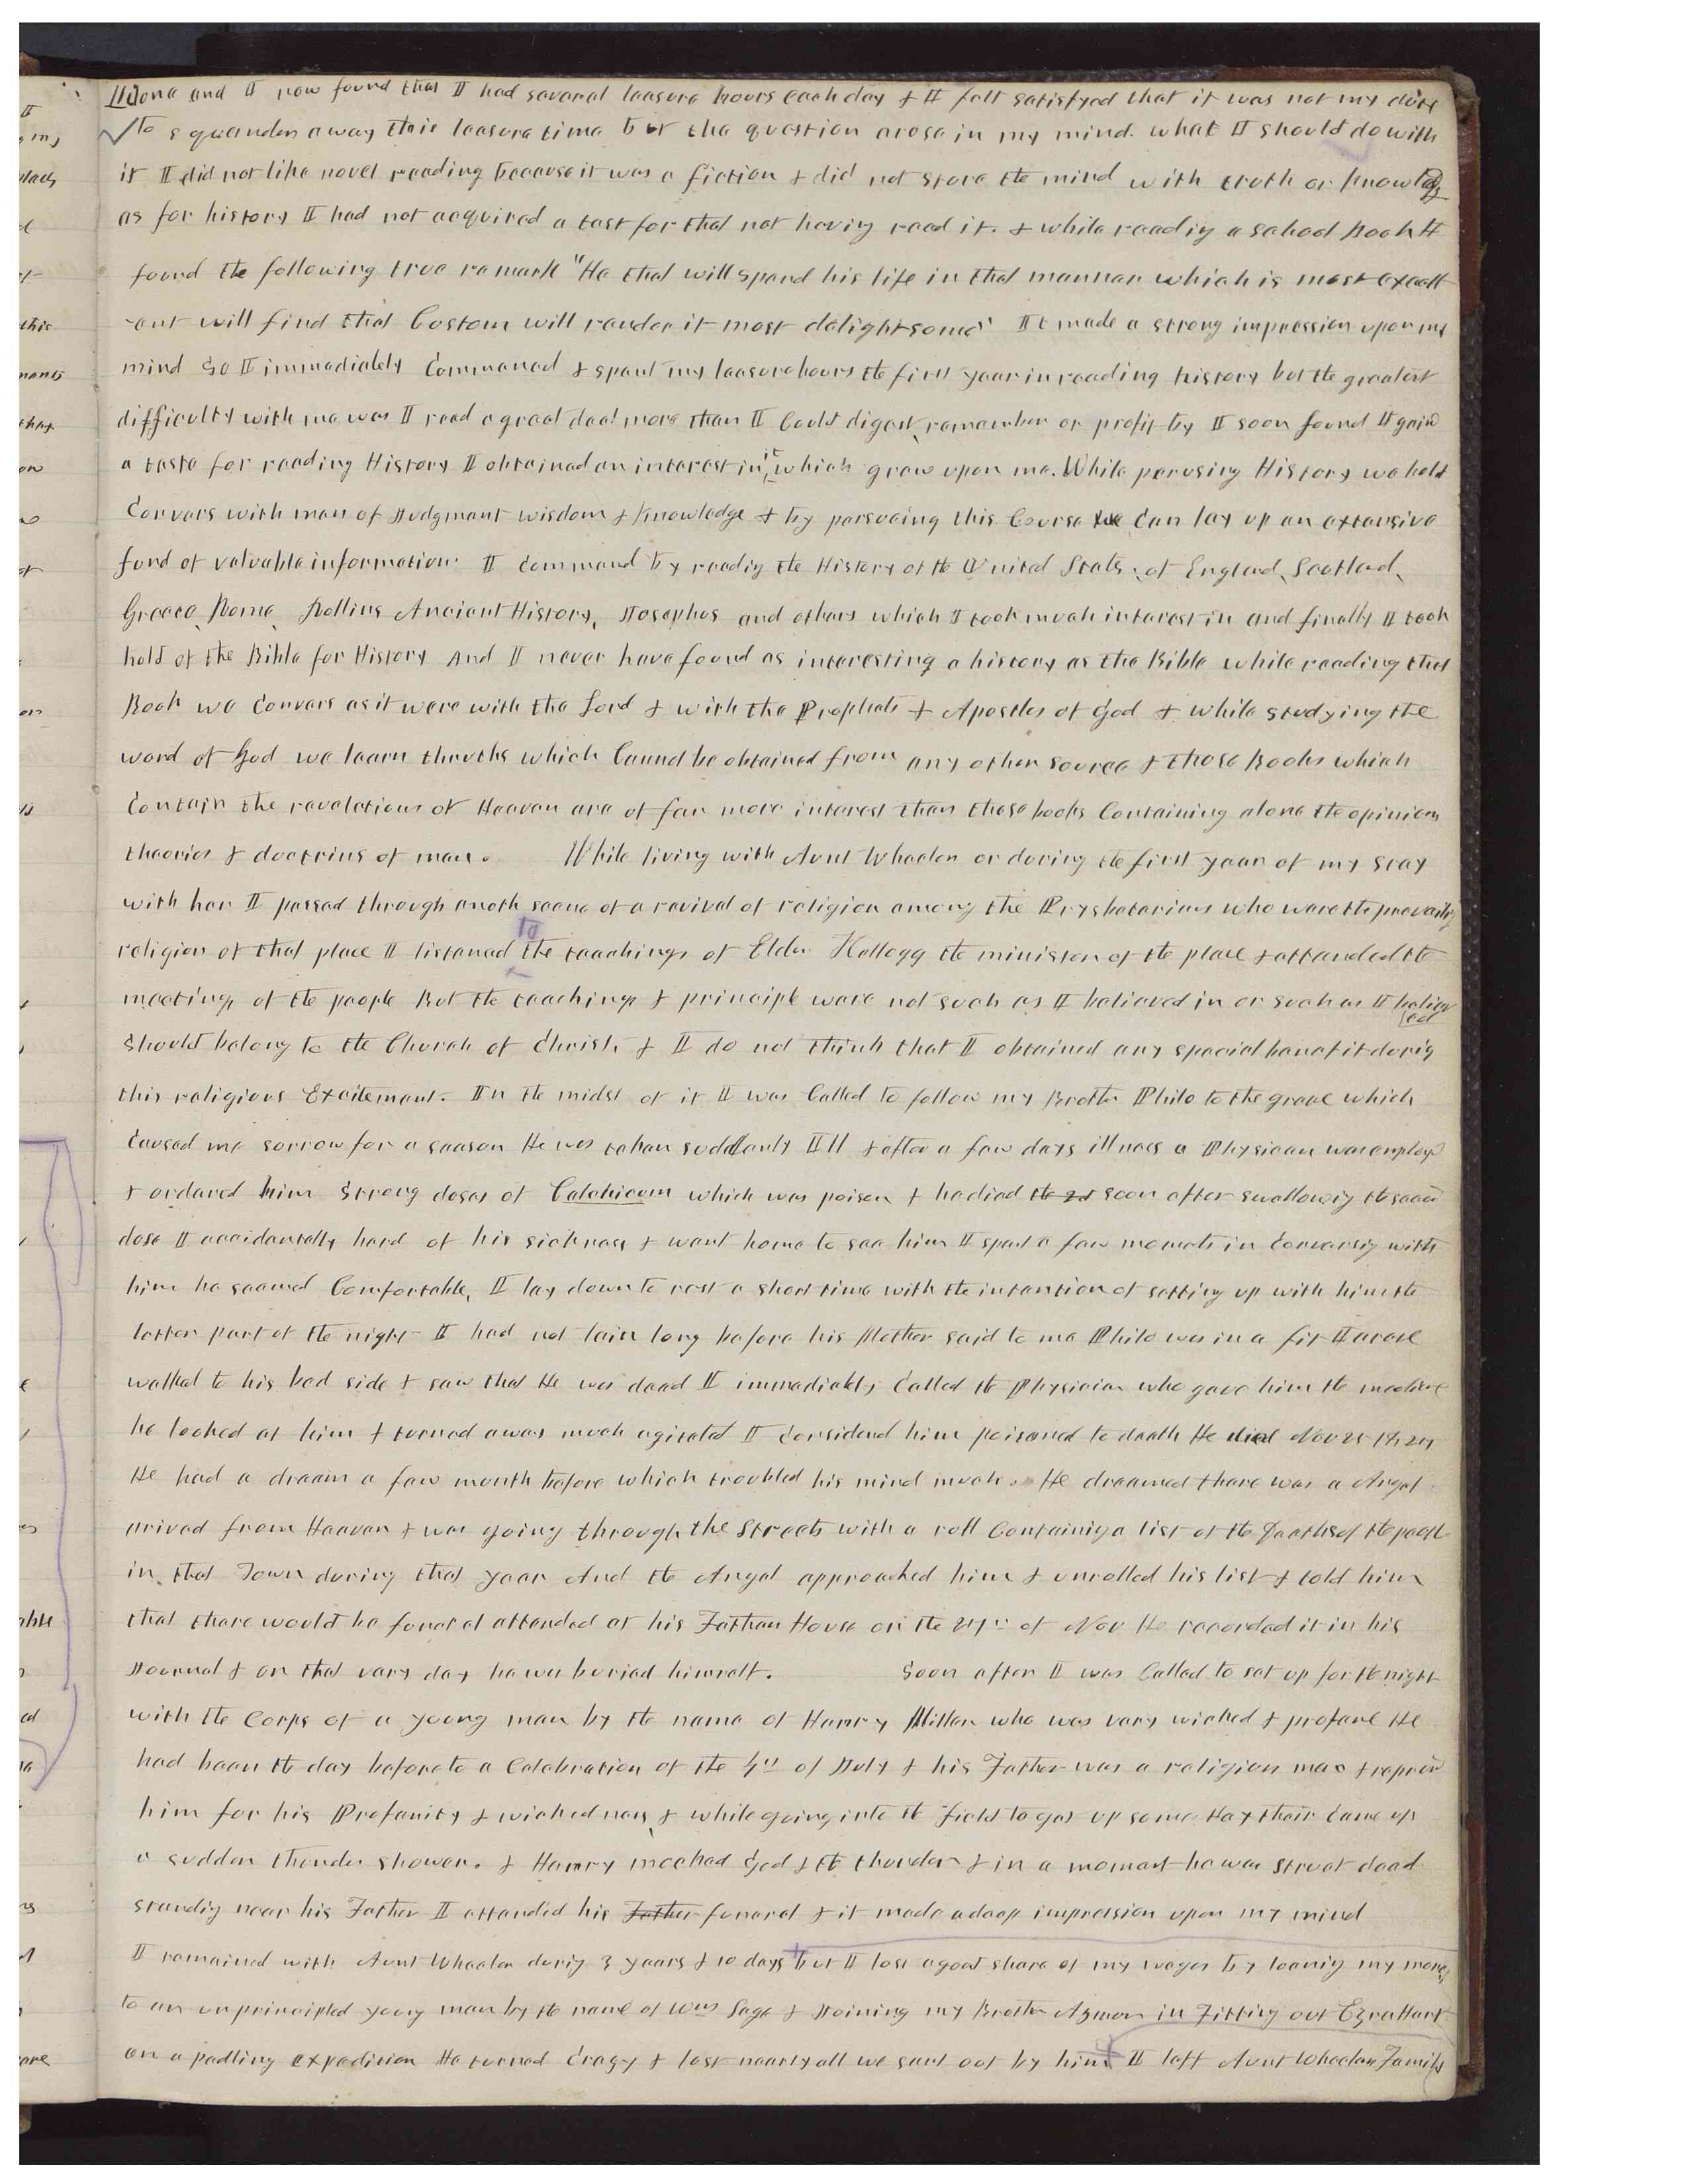 done and I now found that I had several leasure hours each day & I felt satisfyed that it was not my duty
To squander away this leasure time but the question arose in my mind. what I should do with
it I did not like novel reading because it was a fiction & did not store the mind with truth or knowledg
as for history I had not acquired a tast for that not having read it. & while reading a school Book I
found the following true remark "He that will spend his life in that manner which is most excell
-ent will find that Costom will render it most delightsome" It made a strong impression upon my
mind So I immediately Commenced & spent my leasure hours the first year in reading history but the greatest
difficulty with me was I read a great deal more than I Could digest, remember or profit by I soon found I gaind
a taste for reading History I obtained an interest in it, which grew upon me. While perusing History we hold
Convers with men of Judgment wisdom & knowledge & by persueing this Course we Can lay up an extensive
fund of valuable information. I Commenced by reading the History of the United States, of England, Scotland,
Greece, Rome, Rollins Ancient History, Josephus and others which I took much interest in and finally I took
hold of the Bible for History And I never have found as interesting a history as the Bible while reading that
Book we Convers as it were with the Lord & with the Prophets & Apostles of God & while studying the
word of God we learn thruths which Cannot be obtained from any other source & those Books which
Contain the revelations of Heaven are of far more interest than those books Containing alone the opinions
theories & doctrins of men. While living with Aunt Wheelen or during the first year of my stay
with her I passed through anoth scene of a revival of religion among the Prysbeterians who were the prevailig
religion of that place I listened to the teachings of Elder Kellogg the minister of the place & attended the
meetings of the people But the teachings & principle were not such as I believed in or such as I believ
ed
Should belong to the Church of Christ, & I do not think that I obtained any special benefit durig
this religious Excitement. In the midst of it I was Called to follow my Brother Philo to the grave which
Caused me sorrow for a season He was taken suddenly Ill & after a few days illness a Physician was employd
& ordered him Strong doses of Calchicom which was poison & he died the 2d soon after swallowig the secod
dose I accidentally hard of his sickness & went home to see him I spent a few momets in Conversig with
him he seemed Comfortable, I lay down to rest a short time with the intention of setting up with him the
latter part of the night I had not lain long before his Mother said to me Philo was in a fit I arose
walked to his bed side & saw that He was dead I immediately Called the Physician who gave him the medicine
he looked at him & turned away much agitated I Considerd him poisoned to death He died Nov 25 1827
He had a dream a few month before which troubled his mind much. He dreamed there was a Angel
arived from Heaven & was going through the Streets with a roll Containig a list of the Deaths of the peopl
in that Town during that year And the Angel approached him & unrolled his list & told him
that there would be funeral attended at his Fathers House on the 27th of Nov He recorded it in his
Journal & on that very day he was buried himself. Soon after I was Called to set up for the night
with the Corps of a young man by the name of Harry Miller who was very wicked & profane He
had been the day before to a Celebration of the 4th of July & his Father was a religion man & reprovd
him for his Profanity & wickedness, & while going into the field to get up some Hay their Came up
a sudden thunder shower. & Harry mocked God & the thunder & in a moment he was struct dead
standig near his Father I attended his Father funeral & it made a deep impression upon my mind
I remained with Aunt Wheelen durig 3 years & 10 days but I lost a good share of my wages by loanig my money
to an unprincipled young man by the name of Wm Sage & Joining my Brother Azmon in Fitting out Ezra Hart
on a padling expedition He turned Crazy & lost nearly all we sent out by him I left Aunt Wheelen Family